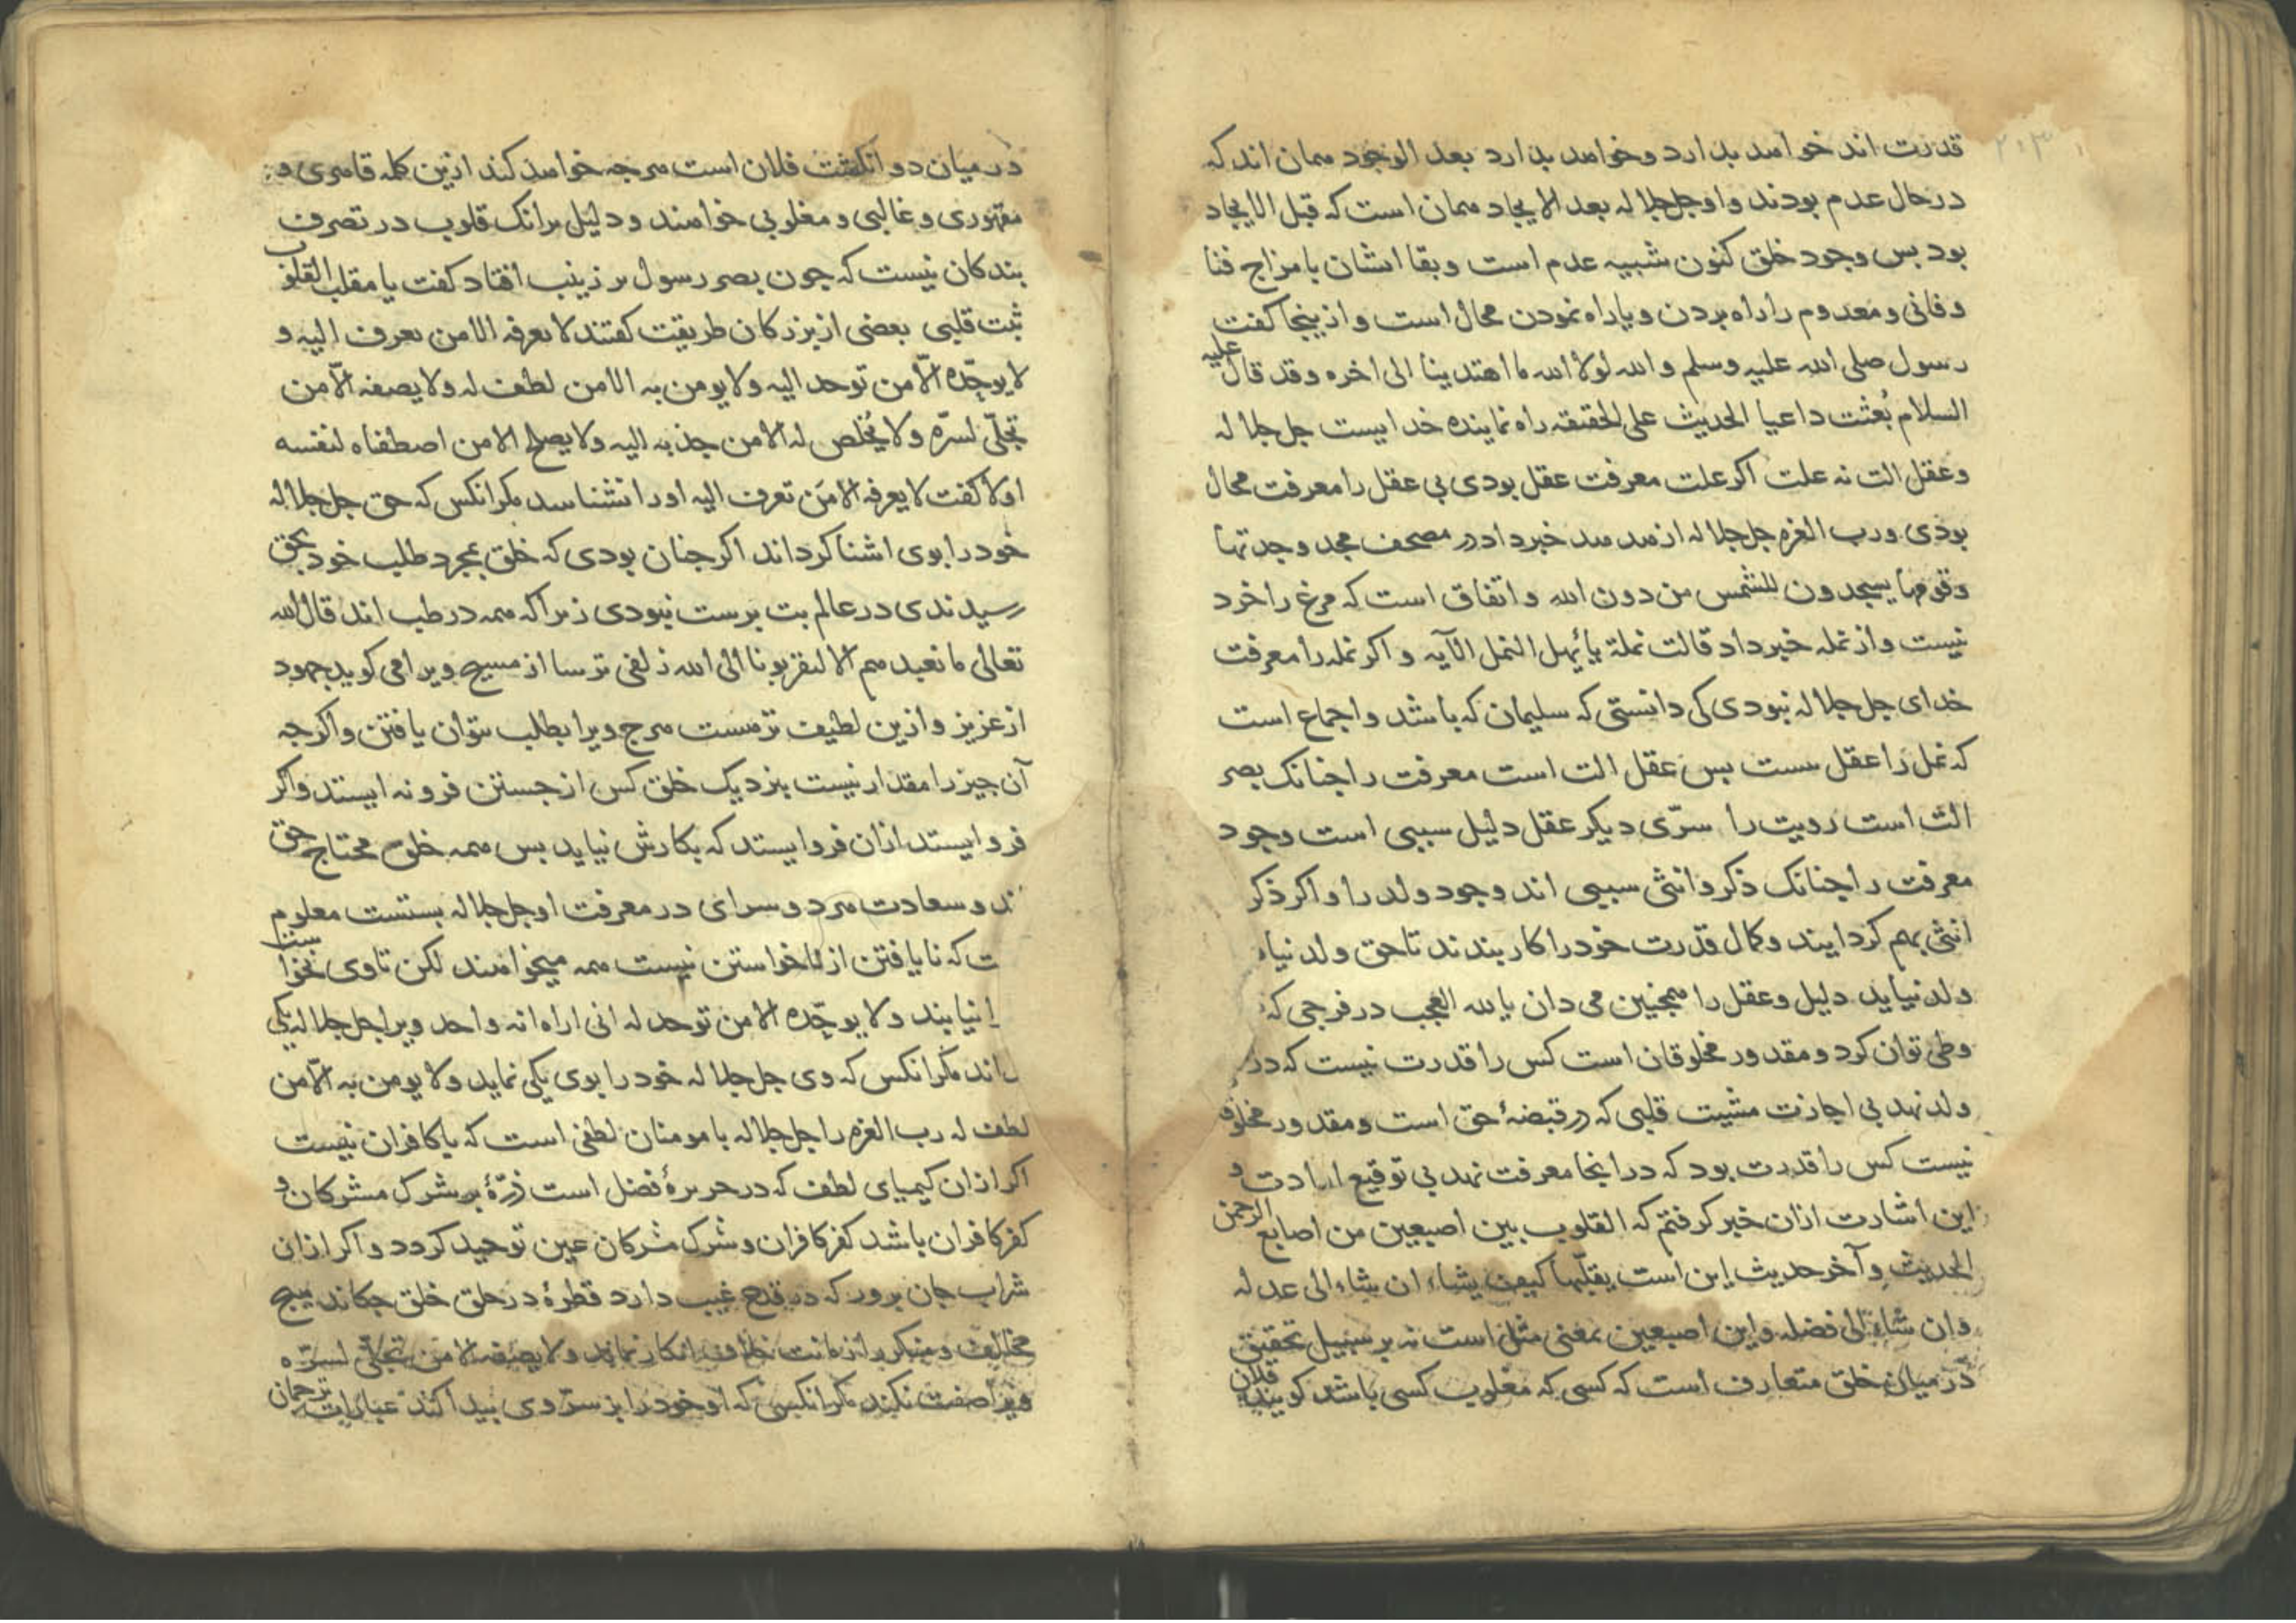 قدرت اند خواهد بدارد و خواهد بدارد بعد الوجود همان اند که
در حال عدم بودند و او جل جلاله بعد الایجاد همان است که قبل الایجاد
بود بس وجود خلق کنون شبیه عدم است و بقا اشان با مزاج فنا
و فانی و معدوم را راه بردن و یا راه نمودن محال است و از ینجا کفت
رسول صلی الله علیه وسلم و الله لولا الله ما اهتدینا الی اخره و قد قال علیه
السلام بُعثت داعیا الحدیث علی الحقیقه راه نماینده خدایست جل جلاله
و عقل الت نه علت اکر علت معرفت عقل بودی بی عقل را معرفت محال
بودی و رب العزه جل جلاله از هدهد خبر داد در مصحف مجد وجدتها
وقومها یسجدون للشمس من دون الله و اتفاق است که مرغ را خرد
نیست و از نمله خبر داد قالت نملة یا ئیهل النمل الآیه و اکر نمله را معرفت
خدای جل جلاله نبودی کی دانستی که سلیمان که باشد و اجماع است
که نمل را عقل نیست بس عقل الت است معرفت را جنانک بصر
الت است رویت را سرّی دیکر عقل دلیل سببی است وجود
معرفت را جنانک ذکر و انثی سببی اند وجود ولد را و اکر ذکر
انثی بهم کرد ایند و کمال قدرت خود را کار بندند تا حق ولد نیا
ولد نیاید دلیل و عقل را همجنین می دان یا لله العجب در فرجی که
وطی توان کرد و مقدور مخلوقان است کس را قدرت نیست که در
ولد نهد بی اجازت مشیت قلبی که در قبضهٔ حق است و مقدور مخلوق
نیست کس را قدرت بود که در انجا معرفت نهد بی توقیع ارادت و
این اشارت ازان خبر کرفتم که القلوب بین اصبعین من اصابع الرحمن
الحدیث و آخر حدیث این است یقلّبها کیف یشاء ان شاء الی عدله
وان شاء الی فضله و این اصبعین بمعنی مثل است نه بر سبیل تحقیق
در میان خلق متعارف است که کسی که مغلوب کسی باشد کویند فلان
در میان دو انکشت فلان است هرجه خواهد کند ازین کلمه قاهری و
مقهوری و غالبی و مغلوبی خواهند و دلیل برانک قلوب در تصرف
بندکان نیست که جون بصر رسول بر زینب افتاد کفت یا مقلب القلوب
ثبت قلبی بعضی از بزرکان طریقت کفتند لا یعرفه الا من تعرف الیه و
لا یوحّده الّا من توحد الیه ولا یومن به الا من لطف له ولا یصفه الّا من
تجلّی لسرّه ولا یُخلص له الا من جذبه الیه ولا یصلح الا من اصطفاه لنفسه
اولا کفت لا یعرفه الا مَن تعرف الیه او را نشناسد مکر انکس که حق جل جلاله
خود را بوی اشنا کرداند اکر جنان بودی که خلق بمجرد طلب خود بحق
رسیدندی در عالم بت برست نبودی زیرا که همه در طب اند قال الله
تعالی ما نعبدهم الا لیقربونا الی الله زلفی ترسا از مسیح ویرا می کوید جهود
از عزیز و ازین لطیف تر هست هرج ویرا بطلب بتوان یافتن و اکرجه
آن جیز را مقدار نیست بنزدیک خلق کس از جستن فرو نه ایستد و اکر
فرو ایستد ازان فرو ایستد که بکارش نیاید بس همه خلق محتاج حق
ند و سعادت هر دو سرای در معرفت او جل جلاله بستست معلوم
ت که نا یافتن از نا خواستن نیست همه میخواهند لکن تا وی نخواست
ا نیابند ولا یوحّده الا من توحد له انی اراه انه واحد ویرا جل جلاله یکی
اند مکر انکس که وی جل جلاله خود را بوی یکی نماید ولا یومن به الّا من
لطف له رب العزه را جل جلاله با مومنان لطفی است که با کافران نیست
اکر ازان کیمیای لطف که در حریرهٔ فضل است ذرّهٔ بر شرک مشرکان و
کفر کافران باشد کفر کافران و شرک مشرکان عین توحید کردد و اکر ازان
شراب جان برور که در قدح غیب دارد قطرهٔ در حلق خلق جکاند هیج
مخالف و منکر را زمانت خلاف انکار نماید ولا یصفه الا من تجلّی لسرّه
ویرا صفت نکند مکر انکسی که او خود را بر سرّ وی بیدا کند عبارات ترجمان